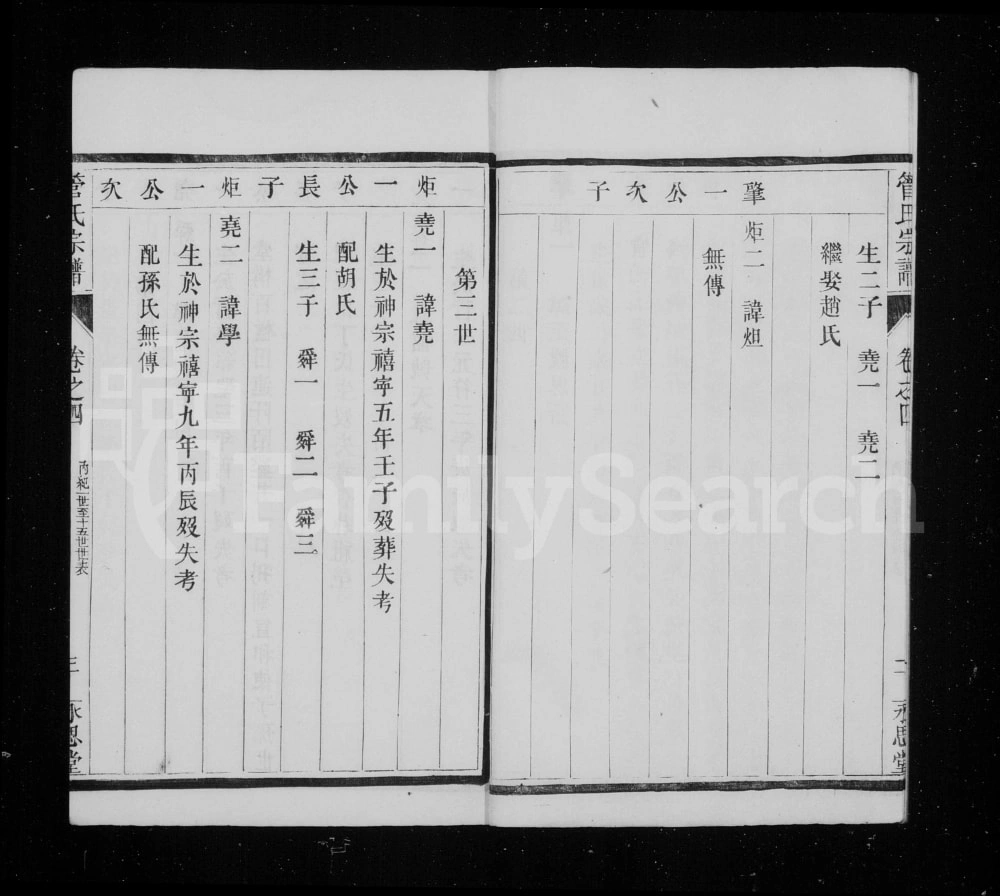 管氏宗譜 卷之四 二 永思堂
生二子 堯一 堯二
繼娶趙氏
肇一公次子
炬二 諱炟
無傳
第三世
炬一公長子
堯一 諱堯
生於神宗禧寧五年壬子歿葬失考
配胡氏
生三子 舜一 舜二 舜三
炬一公次
堯二 諱學
生於神宗禧寧九年丙辰歿失考
配孫氏無傳
管氏宗譜 卷之四 丙紀一世至十五世世表 三 永思堂
FamilySearch